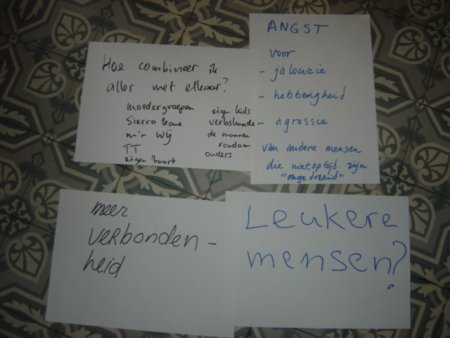 Hoe combineer ik
alles met elkaar?
moedergroepen eigen kids
Sierra Leone
m'n wij de mannen
TT rondom
eigen buurt ouders
ANGST
voor
- jalouzie
- hebberigheid
- agressie
van andere mensen
die niet op tijd zijn
meer
verbonden-
heid
Leukere
mensen?